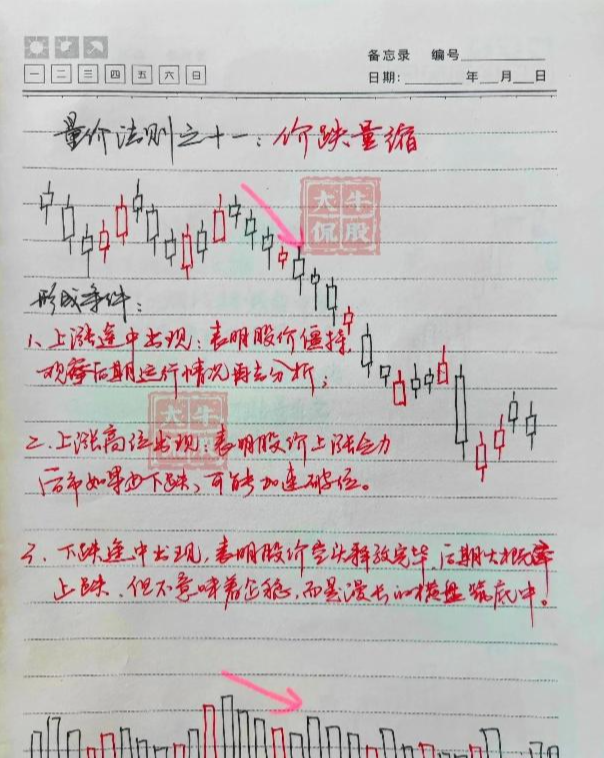 备忘录 编号
一 二 三 四 五 六 日
日期: 年 月 日
量价法则之十一:价跌量缩
大牛
侃股
形成条件:
1、上涨途中出现:表明股价僵持,
观察后期运行情况再去分析;
大牛
2.上涨高位出现:表明股价上涨乏力
后市如果由下跌,可能加速破位。
3、下跌途中出现,表明股价空头释放完毕,后期大概率
止跌、但不意味着企稳,而是漫长的横盘筑底中。